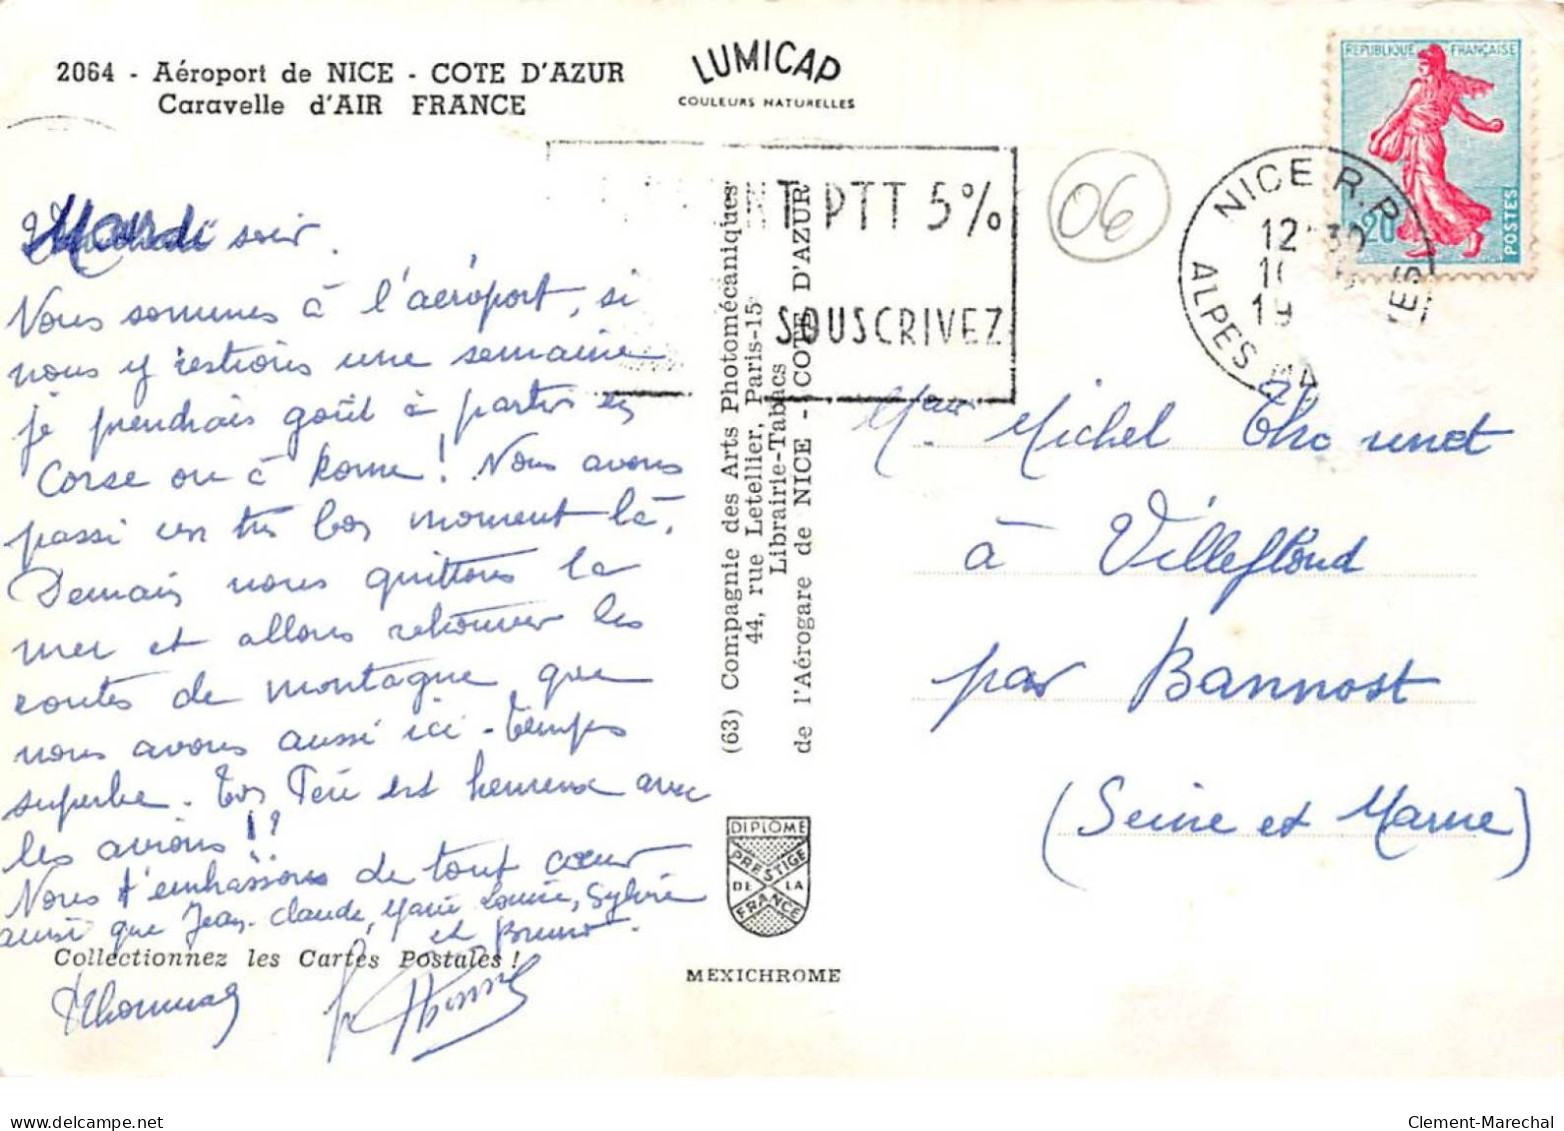 2064 - Aéroport de NICE - COTE D'AZUR
Caravelle d'AIR FRANCE
LUMICAP
COULEURS NATURELLES
REPUBLIQUE FRANÇAISE
POSTES
20
NT PTT 5%
SOUSCRIVEZ
NICE R.P.
12 30
19
ALPES MA ES
06
Mardi soir.
Nous sommes à l'aéroport, si
nous y restions une semaine
je prendrais goût à partir en
Corse ou à Rome! Nous avons
passé un très bon moment là.
Demain nous quittons la
mer et allons retrouver les
routes de montagne que
nous avons aussi ici - temps
superbe. Ton Père est heureux avec
les avions!?
Nous t'embrassons de tout cœur
ainsi que Jean-Claude, Marie Louise, Sylvie
et Bruno.
Collectionnez les Cartes Postales!
(63) Compagnie des Arts Photomécaniques
44, rue Letellier, Paris-15e
Librairie-Tabacs
de l'Aérogare de NICE - COTE D'AZUR
M. Michel
à Villeflond
par Bannost
(Seine et Marne)
DIPLOME
PRESTIGE
DE LA
FRANCE
MEXICHROME
Clement-Marechal